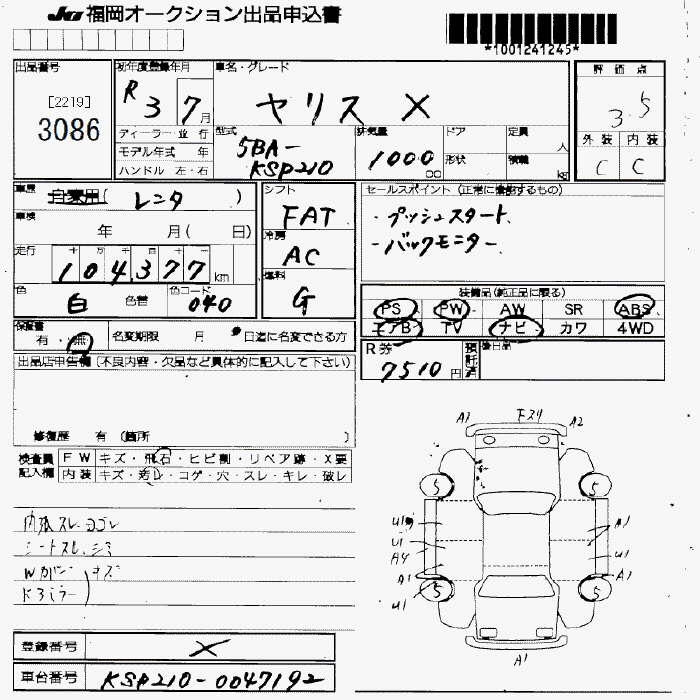 JU 福岡オークション出品申込書
*1001241245*
出品番号
[2219]
3086
初年度登録年月
R 3 7月
ディーラー・並行
モデル年式 年
ハンドル 左・右
車名・グレード
ヤリス X
型式
5BA-
KSP210
排気量
1000
cc
ドア
形状
定員
人
積載
kg
評価点
3.5
外装 内装
C C
車歴
自家用(レンタ)
車検
年 月( 日)
走行
104,377km
色
白
色替
色コード
040
シフト
FAT
冷房
AC
燃料
G
セールスポイント (正常に機能するもの)
・プッシュスタート、
・バックモニター、
装備品(純正品に限る)
PS PW AW SR ABS
エアB TV ナビ カワ 4WD
保証書
有・無
名変期限 月 日迄に名変できる方
R券
7510円
預託済
後日品
出品店申告欄 (不良内容・欠品など具体的に記入して下さい)
修復歴 有 (箇所 )
検査員
記入欄
FW キズ・飛石・ヒビ割・リペア跡・X要
内装 キズ・汚レ・コゲ・穴・スレ・キレ・破レ
内張スレ、ヨゴレ
シートスレ、シミ
キズ
A1
A2
5
5
U1
A4
A1
U1
A1
U1
A1
5
5
A1
登録番号
X
車台番号
KSP210-0047192